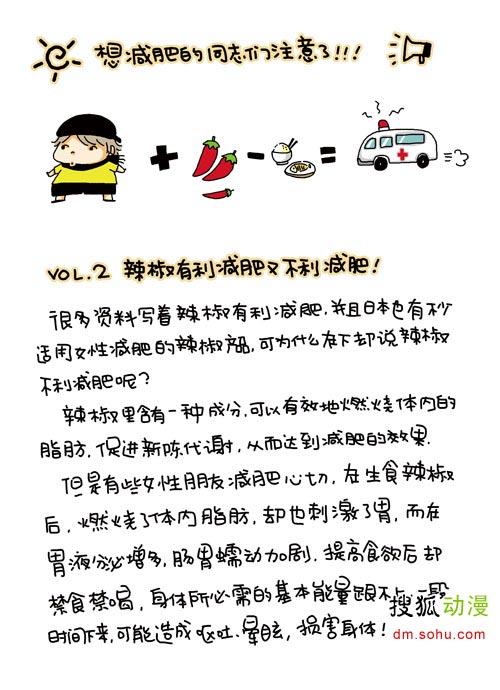 想减肥的同志们注意了!!!
VOL.2 辣椒有利减肥又不利减肥!
很多资料写着辣椒有利减肥,并且日本也有不少
适用女性减肥的辣椒产品,可为什么在下却说辣椒
不利减肥呢?
辣椒里含有一种成分,可以有效地燃烧体内的
脂肪,促进新陈代谢,从而达到减肥的效果.
但是有些女性朋友减肥心切,在生食辣椒
后,燃烧了体内脂肪,却也刺激了胃,而在
胃液分泌增多,肠胃蠕动加剧,提高食欲后却
禁食禁喝,身体所必需的基本能量跟不上,一段
时间下来,可能造成呕吐.晕眩,损害身体!
搜狐动漫
dm.sohu.com